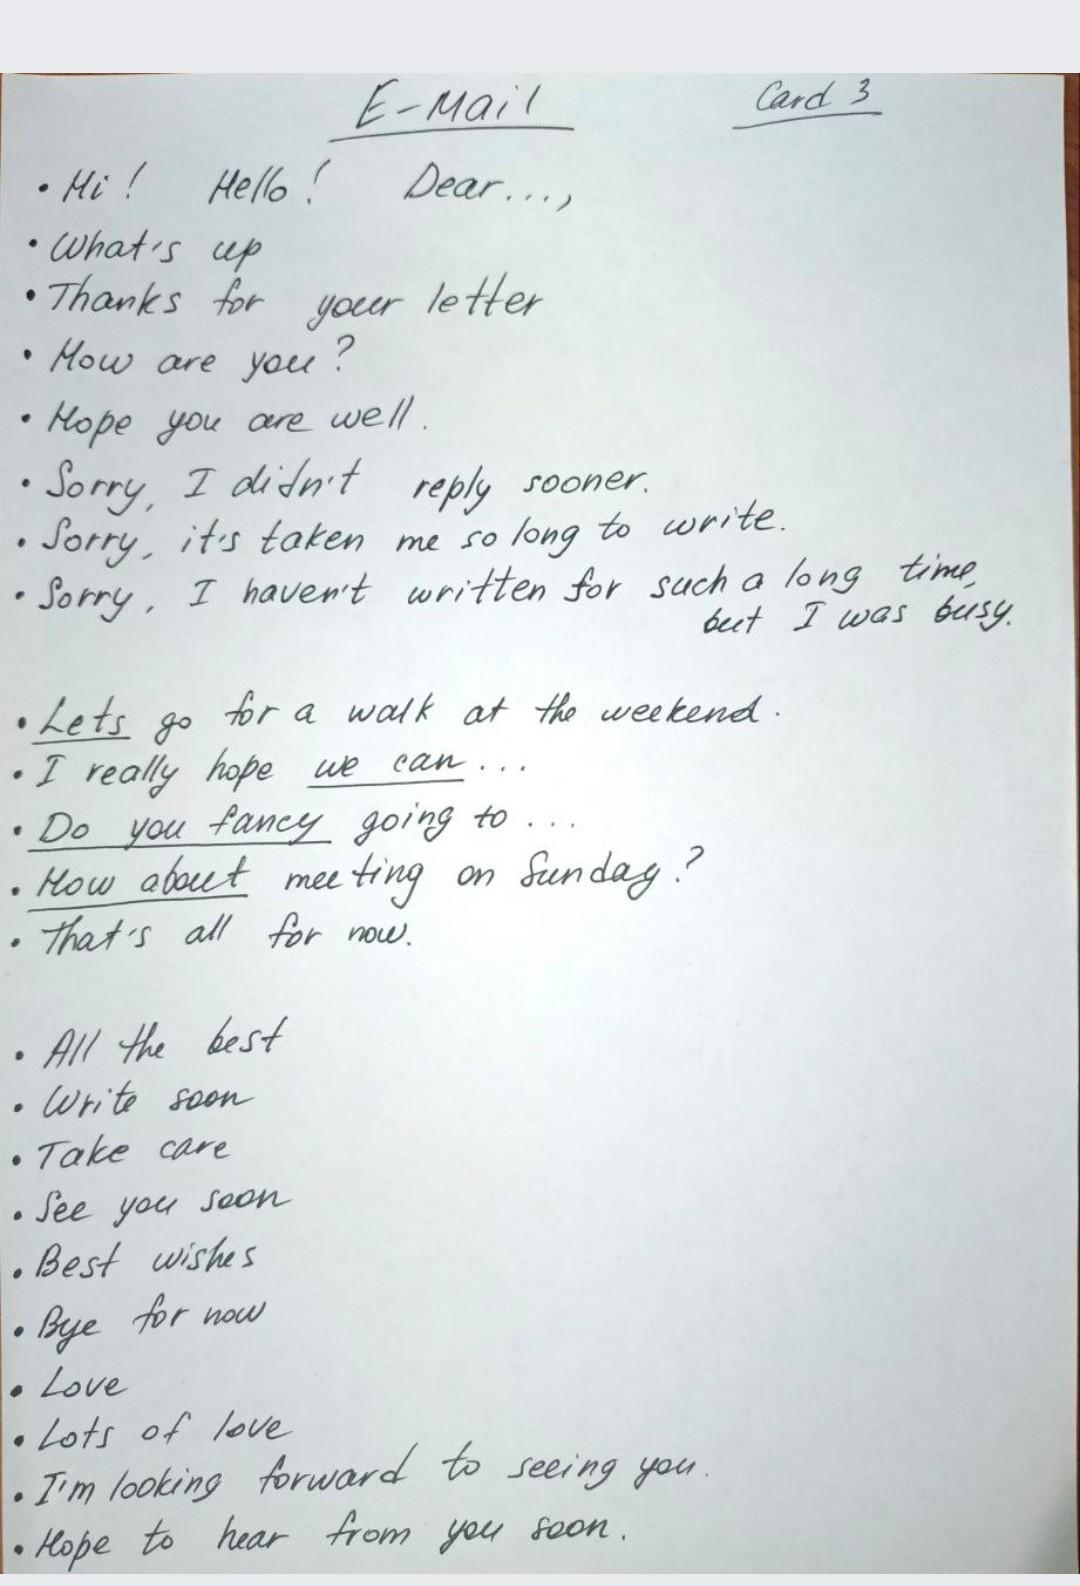 E-Mail Card 3
• Hi! Hello! Dear...,
• What's up
• Thanks for your letter
• How are you?
• Hope you are well.
• Sorry, I didn't reply sooner.
• Sorry, it's taken me so long to write.
• Sorry, I haven't written for such a long time,
but I was busy.
• Lets go for a walk at the weekend.
• I really hope we can...
• Do you fancy going to...
• How about meeting on Sunday?
• That's all for now.
• All the best
• Write soon
• Take care
• See you soon
• Best wishes
• Bye for now
• Love
• Lots of love
• I'm looking forward to seeing you.
• Hope to hear from you soon.